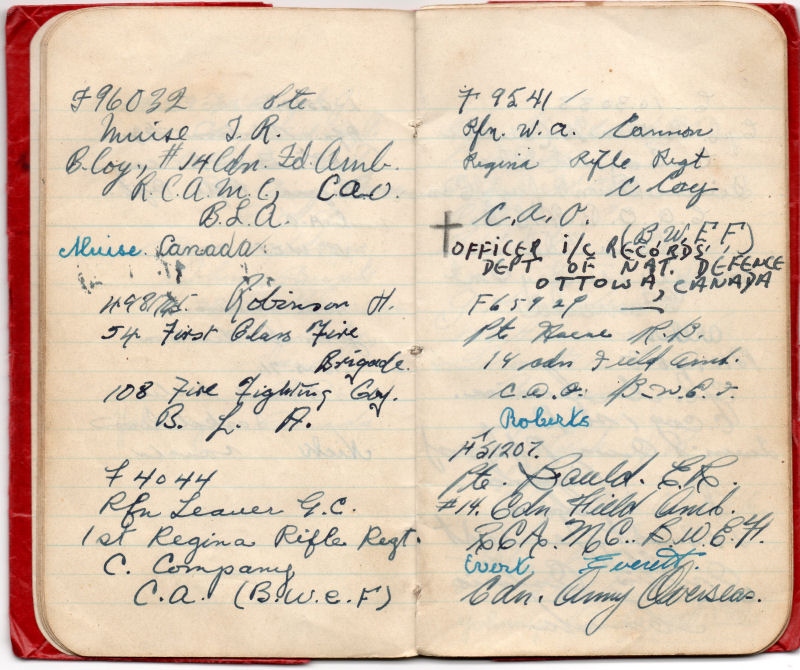 F96032 Pte
Muise J. R.
B. Coy., #14 Cdn. Fd. Amb.
R.C.A.M.C, C.A.O.
B.L.A.
Muise Canada
Robinson H.
54 First Class Fire
Brigade.
108 Fire Fighting Coy.
B. L. A.
F 4044
Rfn Leaver G.C.
1st Regina Rifle Regt.
C. Company
C.A. (B.W.E.F)
F 9541
Rfn. W.A. Cannon
Regina Rifle Regt
C Coy
C.A.O. (B.W.E.F.)
OFFICER i/c RECORDS,
DEPT OF NAT. DEFENCE
OTTOWA, CANADA
F65929
Pte R.B.
14 cdn Field Amb.
C.A.O. B.W.E.F.
Roberts
51207.
Pte. Bauld. E.R.
#14. Cdn Field Amb.
R.C.A.M.C. B.W.E.F.
Evert Everett.
Cdn. Army Overseas.